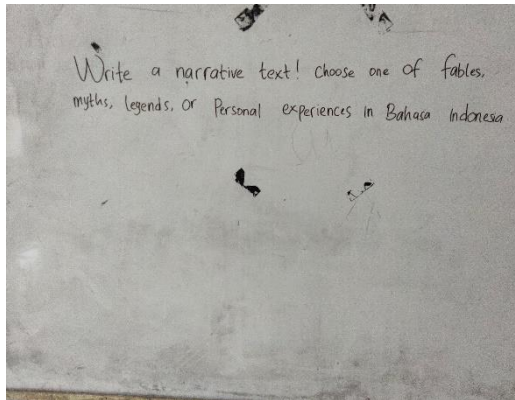 Write a narrative text! Choose one of fables,
myths, legends, or Personal experiences in Bahasa Indonesia